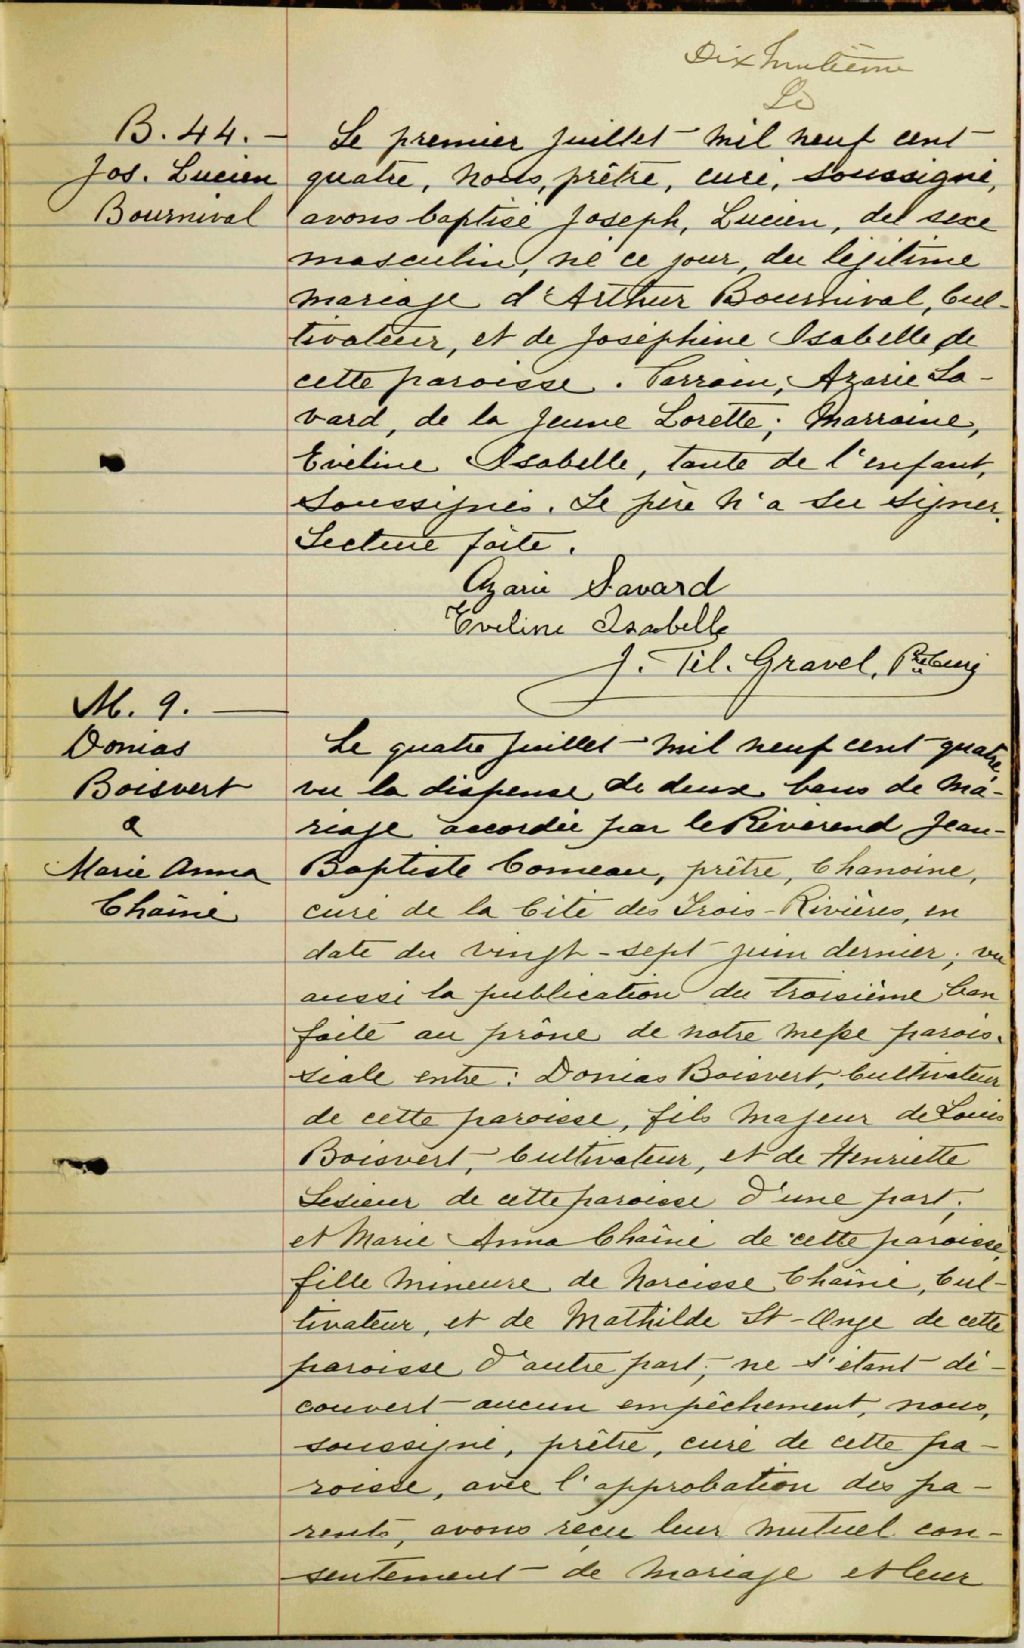 Dix huitième
B. 44. —
Jos. Lucien
Bournival
Le premier Juillet mil neuf cent
quatre, nous, prêtre, curé, soussigné,
avons baptisé Joseph, Lucien, du sexe
masculin, né ce jour, du légitime
mariage d'Arthur Bournival, Cul-
tivateur, et de Joséphine Isabelle de
cette paroisse. Parrain, Azarie Sa-
vard, de la Jeune Lorette; Marraine,
Eveline Isabelle, tante de l'enfant,
soussignés. Le père n'a su signer.
Lecture faite.
Azarie Savard
Eveline Isabelle
J. Tél. Gravel, Ptre Curé
M. 9. —
Donias
Boisvert
&
Marie Anna
Chaîné
Le quatre Juillet mil neuf cent quatre,
vu la dispense de deux bans de ma-
riage accordée par le Révérend Jean-
Baptiste Comeau, prêtre, Chanoine,
curé de la Cité des Trois-Rivières, en
date du vingt-sept juin dernier; vu
aussi la publication du troisième ban
faite au prône de notre messe parois-
siale entre: Donias Boisvert, Cultivateur
de cette paroisse, fils majeur de Louis
Boisvert, Cultivateur, et de Henriette
Lesieur de cette paroisse d'une part;
et Marie Anna Chaîné de cette paroisse,
fille mineure de Narcisse Chaîné, Cul-
tivateur, et de Mathilde St-Onge de cette
paroisse d'autre part; ne s'étant dé-
couvert aucun empêchement, nous,
soussigné, prêtre, curé de cette pa-
roisse, avec l'approbation des pa-
rents, avons reçu leur mutuel con-
sentement de mariage et leur